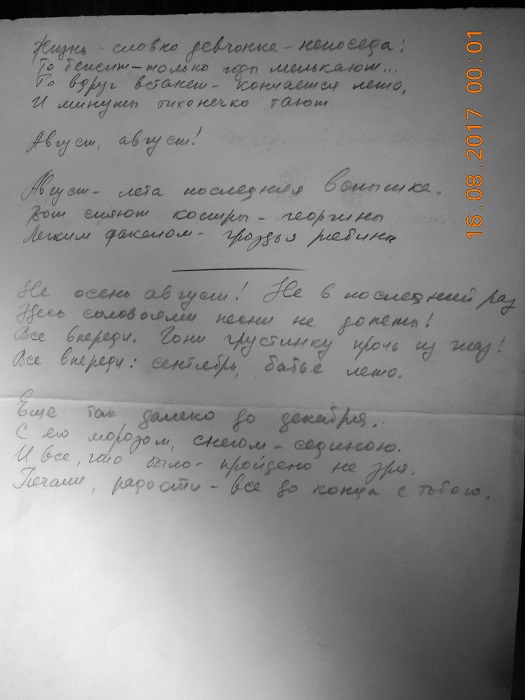 Жизнь - словно девчонка - непоседа!
То бежит - только годы мелькают...
То вдруг встанет - кончается лето,
И минуты тихонечко тают.
Август, август!
Август - лета последняя вспышка.
Вот сияют костры - георгины
Легким факелом - гроздья рябины
Не осень август! Не в последний раз
Здесь соловьями песни не допеты!
Все впереди. Гони грустинку прочь из глаз!
Все впереди: сентябрь, бабье лето.
Еще так далеко до декабря.
С его морозом, снегом - сединою.
И все, что было - пройдено не зря.
Печали, радости - все до конца с тобою.
16.08.2017 00:01